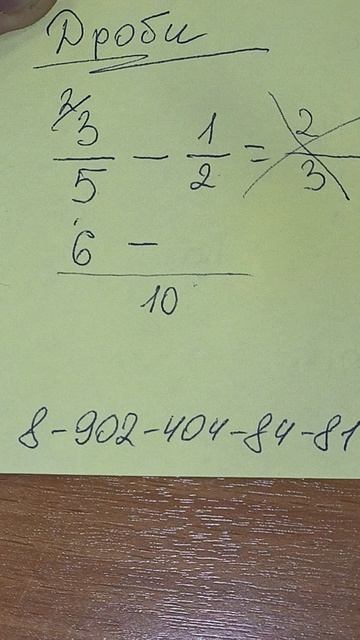 Дроби
3/5 - 1/2 = 2/3
6 -
10
8-902-404-84-81